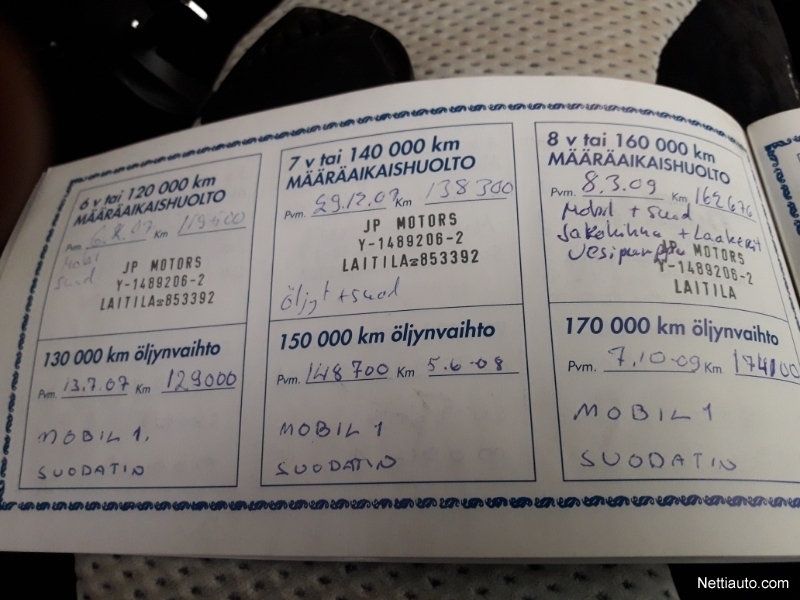 6 v tai 120 000 km
MÄÄRÄAIKAISHUOLTO
Pvm. Km
Mobil
Suod
JP MOTORS
Y-1489206-2
LAITILA☎853392
130 000 km öljynvaihto
Pvm. 13.7.07 Km 129000
MOBIL 1.
SUODATIN
7 v tai 140 000 km
MÄÄRÄAIKAISHUOLTO
Pvm. 29.12.07 Km 138300
JP MOTORS
Y-1489206-2
LAITILA☎853392
Öljyt + suod
150 000 km öljynvaihto
Pvm. 148700 Km 5.6-08
MOBIL 1
SUODATIN
8 v tai 160 000 km
MÄÄRÄAIKAISHUOLTO
Pvm. 8.3.09 Km 162676
Mobil + Suod
Jakohihna + Laakerit
Vesipumppu
JP MOTORS
Y-1489206-2
LAITILA
170 000 km öljynvaihto
Pvm. 7.10-09 Km 174100
MOBIL 1
SUODATIN
Nettiauto.com